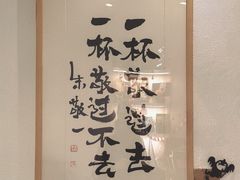 一杯敬過去
一杯敬过不去
朱敬一